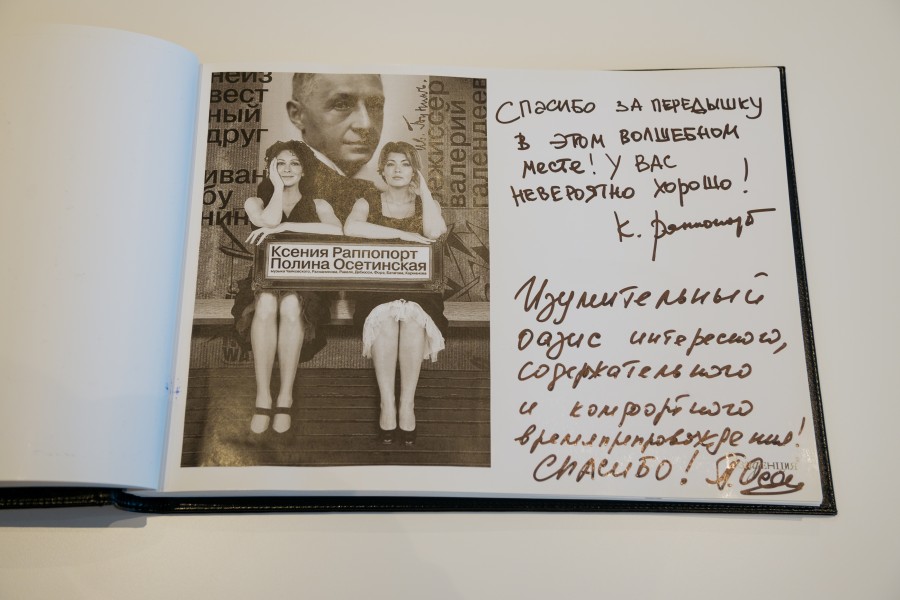 неиз
вест
ный
друг
иван
бу
нин
режиссер
валерий
галендеев
Ив. Бунинъ.
Ксения Раппопорт
Полина Осетинская
Спасибо за передышку
в этом волшебном
месте! У вас
невероятно хорошо!
К. Раппопорт
Изумительный
оазис интересного,
содержательного
и комфортного
времяпрепровождения!
СПАСИБО!